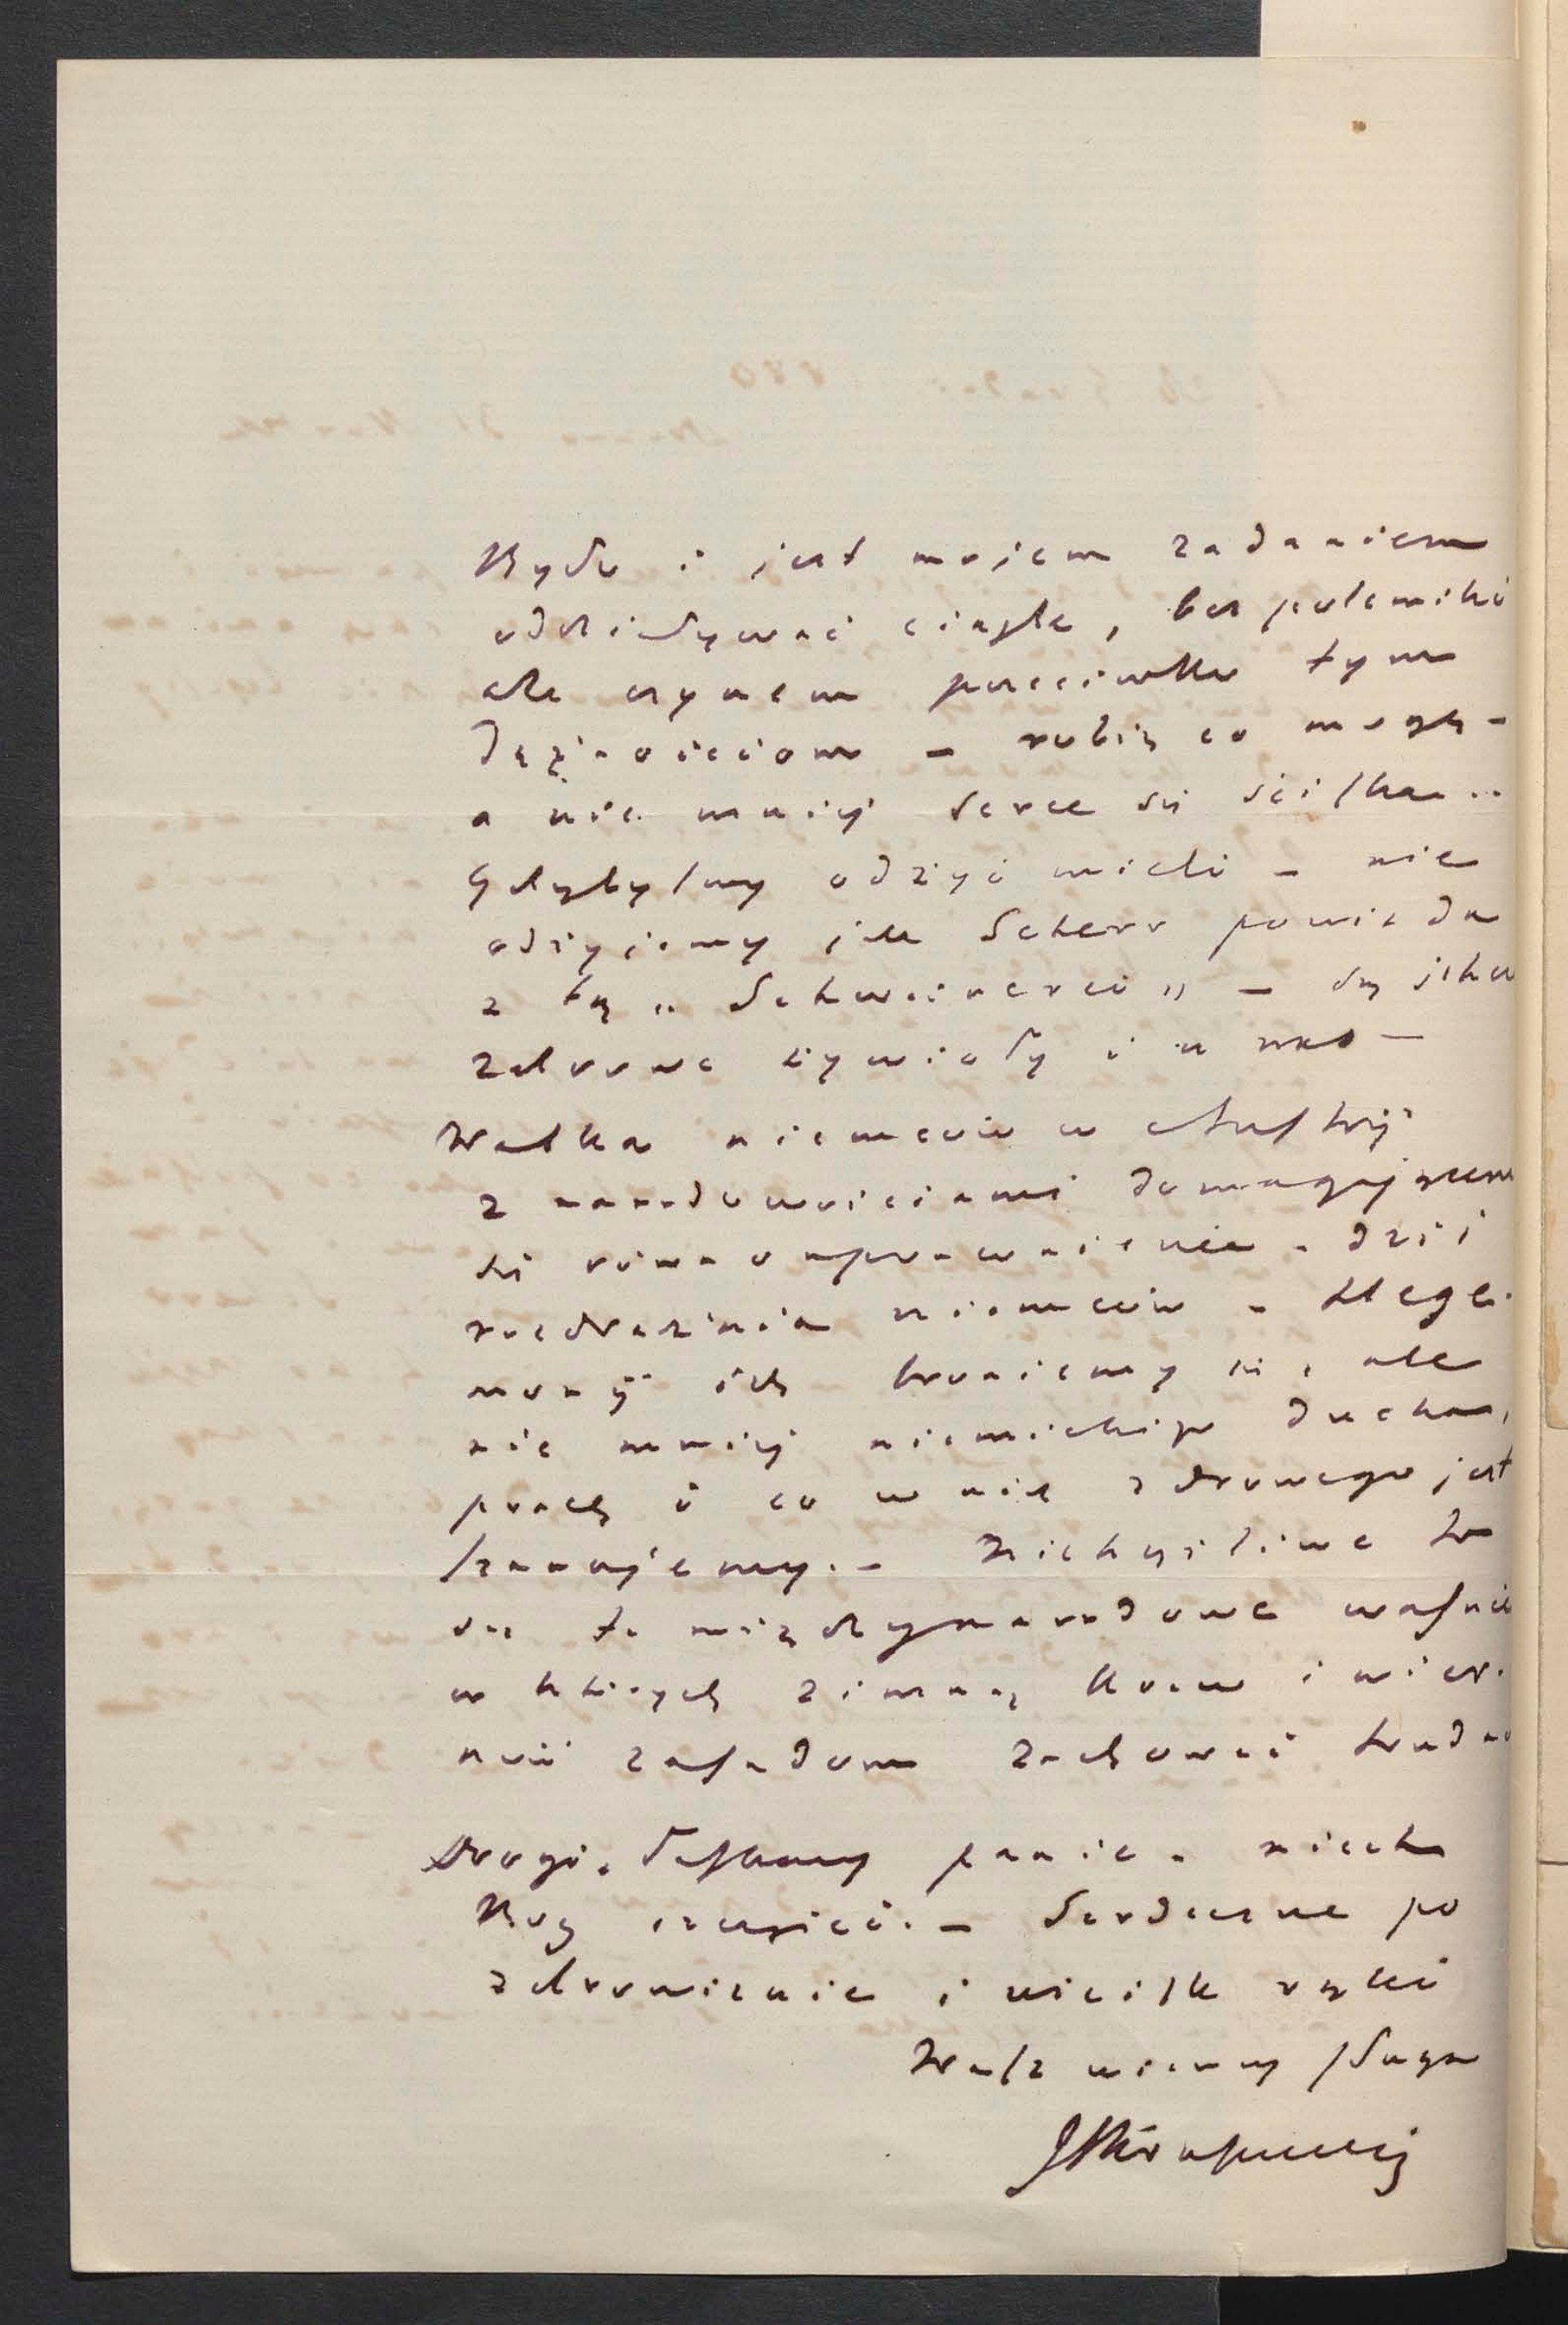 Było i jest mojem zadaniem
oddziaływać ciągle, bez polemiki
ale czynem przeciwko tym
dążnościom – robię co mogę –
a nie mniej serce się ściska..
Gdybyśmy odżyć mieli – nie
odżyjemy jak Scherr powiada
z tą „Schweinerei" – są jakieś
zdrowe żywioły i u nas –
Walka niemców w Austryi
z narodowościami domagającemi
się równouprawnienia – dziś
rozdrażnia niemców – Hege-
monji ich bronimy się, ale
nie mniej niemieckiego ducha,
pracę i co w nich zdrowego jest
szanujemy. – Nieszczęśliwe to
są te międzynarodowe waśnie
w których zimną krew i wier-
ność zasadom zachować trudno
Drogi, Łaskawy panie – niech
Bóg szczęści. – Serdeczne po
zdrowienie i uścisk ręki
Wasz wierny sługa
JIKraszewski